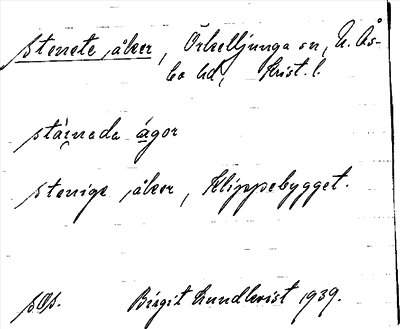 stenete åker, Örkelljunga sn, N. Ås-
bo hd, Krist. l.
stäınada ágor
steniga åker, Klippebygget.
Birgit Lundkvist 1939.